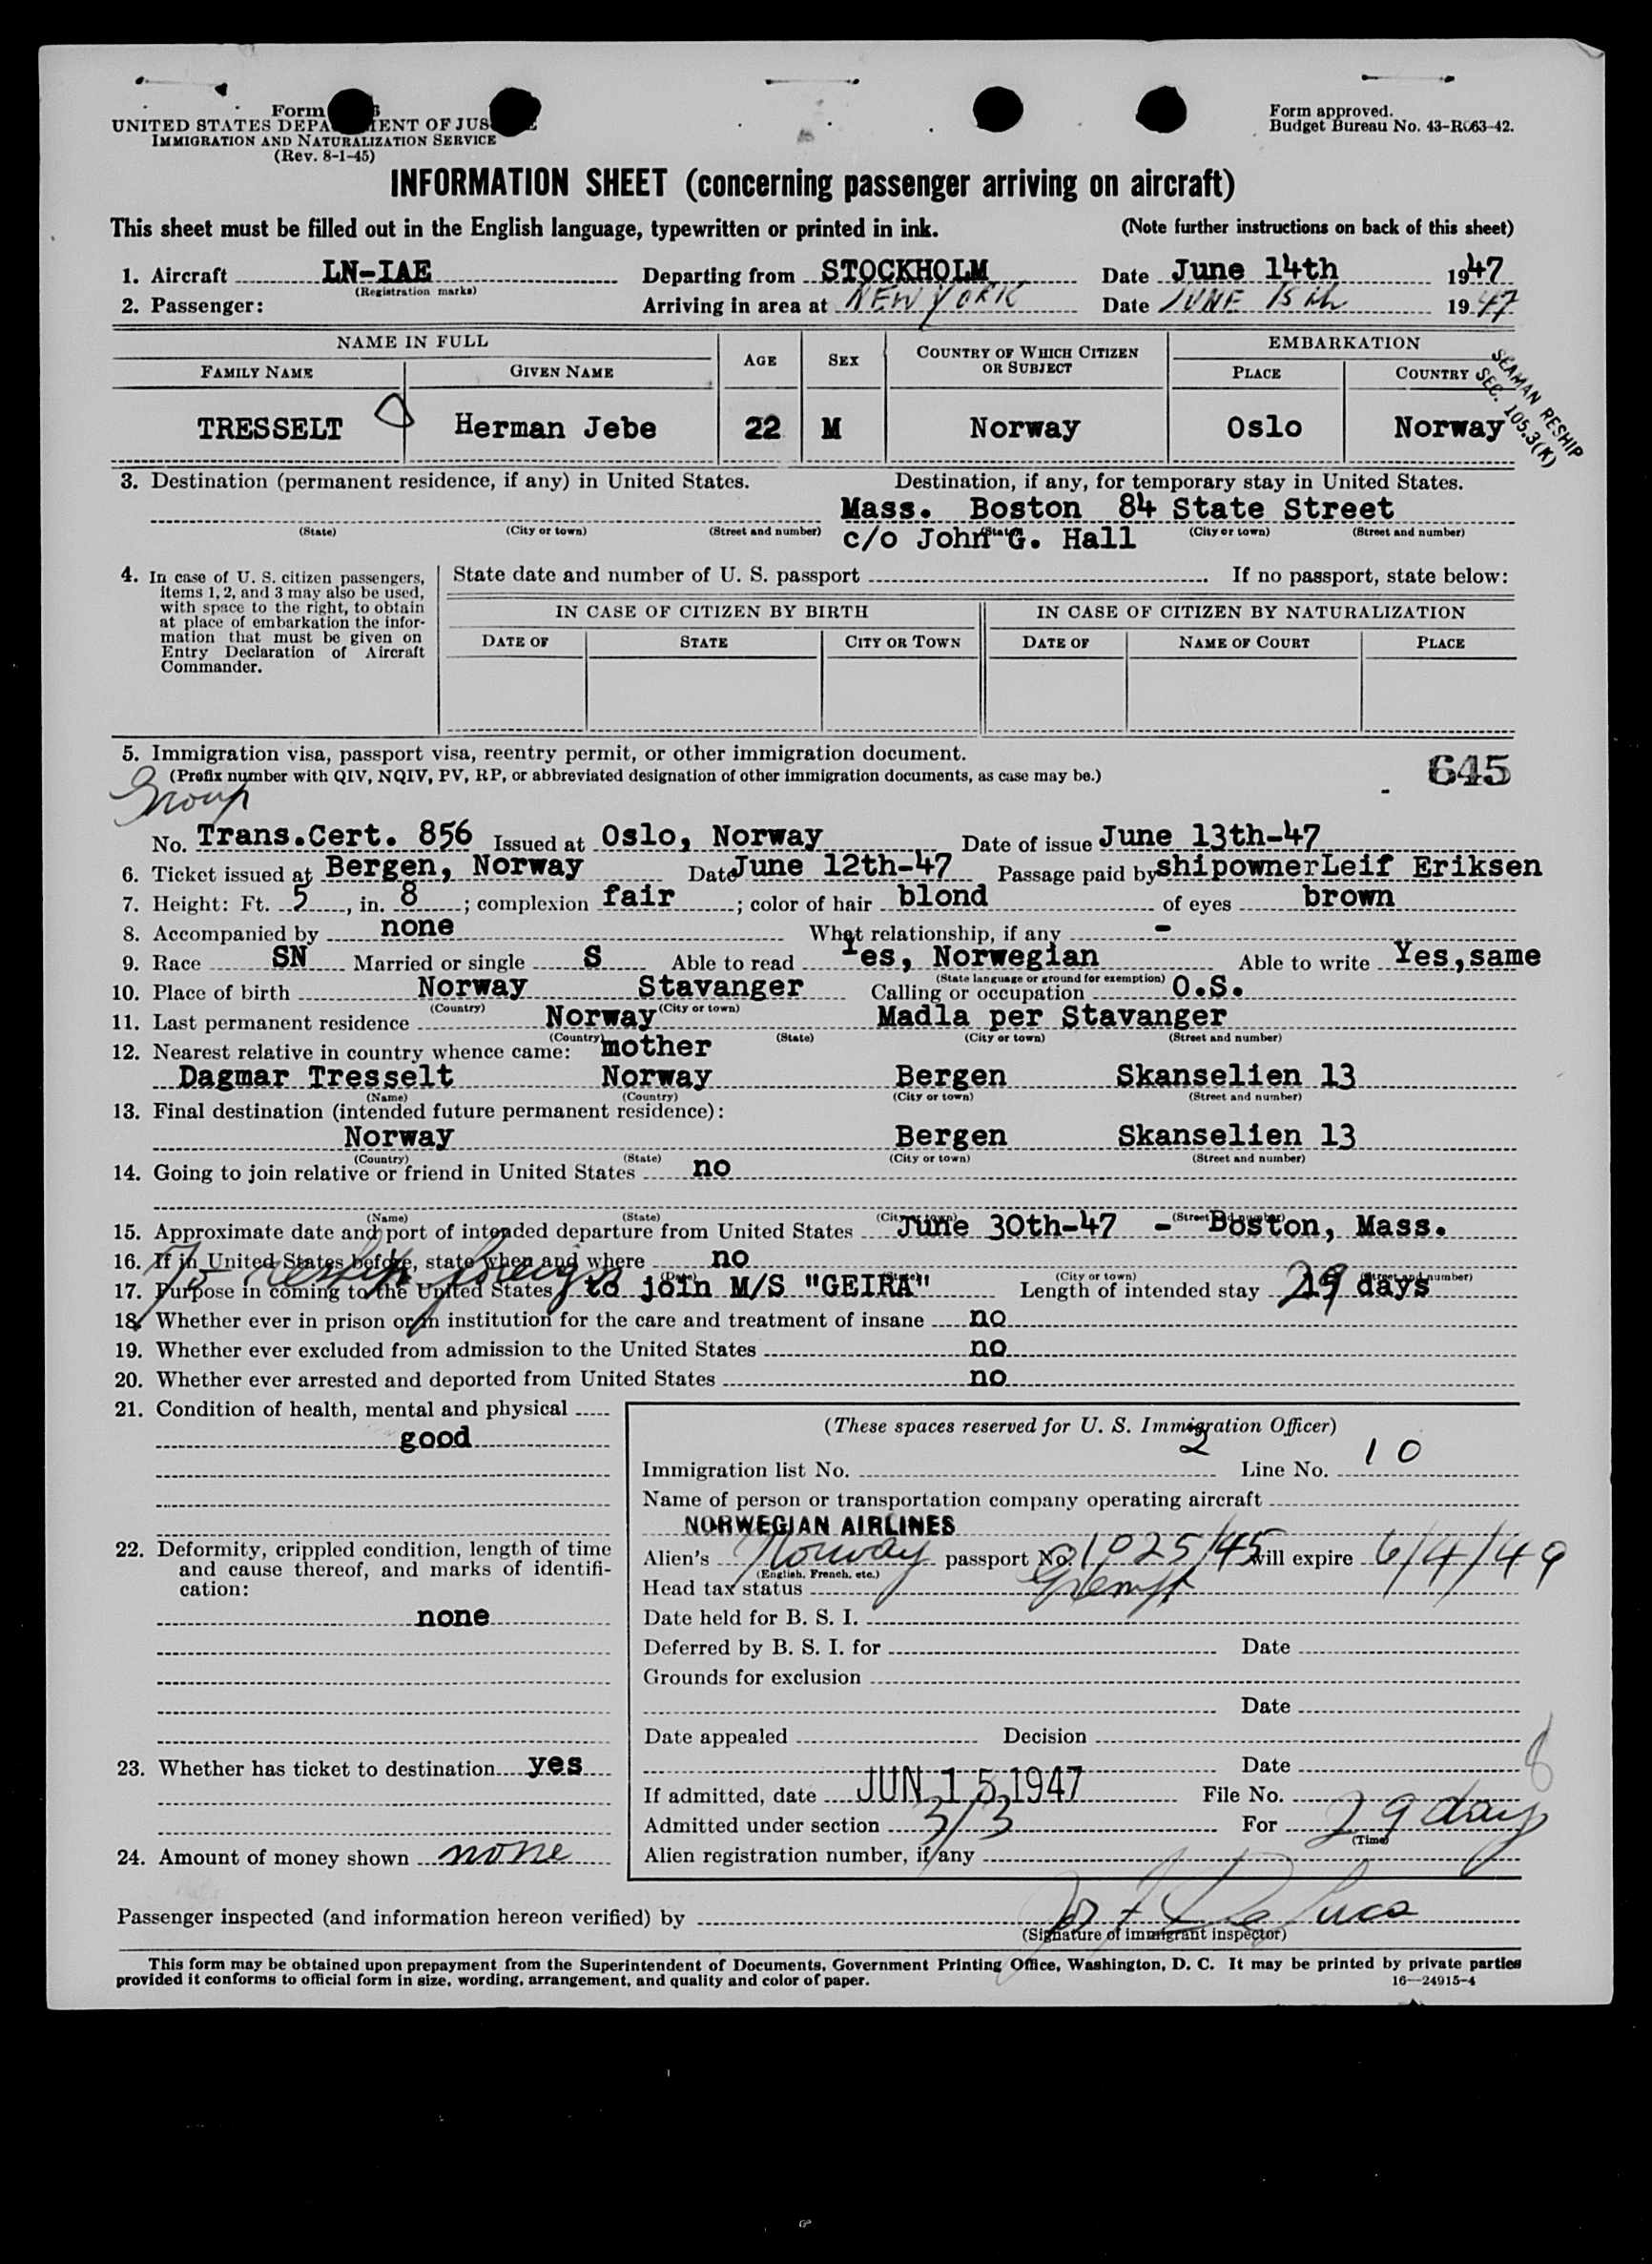 Form
UNITED STATES DEPARTMENT OF JUSTICE
IMMIGRATION AND NATURALIZATION SERVICE
(Rev. 8-1-45)
Form approved.
Budget Bureau No. 43-R063-42.
INFORMATION SHEET (concerning passenger arriving on aircraft)
This sheet must be filled out in the English language, typewritten or printed in ink. (Note further instructions on back of this sheet)
1. Aircraft LN-IAE Departing from STOCKHOLM Date June 14th 1947
(Registration marks)
2. Passenger: Arriving in area at NEW YORK Date JUNE 15th 1947
NAME IN FULL AGE SEX COUNTRY OF WHICH CITIZEN OR SUBJECT EMBARKATION
FAMILY NAME GIVEN NAME PLACE COUNTRY
TRESSELT Herman Jebe 22 M Norway Oslo Norway
SEAMAN RESHIP
SEC. 105.3(K)
3. Destination (permanent residence, if any) in United States. Destination, if any, for temporary stay in United States.
Mass. Boston 84 State Street
(State) (City or town) (Street and number) (State) (City or town) (Street and number)
c/o John G. Hall
4. In case of U. S. citizen passengers, items 1, 2, and 3 may also be used, with space to the right, to obtain at place of embarkation the information that must be given on Entry Declaration of Aircraft Commander.
State date and number of U. S. passport If no passport, state below:
IN CASE OF CITIZEN BY BIRTH IN CASE OF CITIZEN BY NATURALIZATION
DATE OF STATE CITY OR TOWN DATE OF NAME OF COURT PLACE
5. Immigration visa, passport visa, reentry permit, or other immigration document.
(Prefix number with QIV, NQIV, PV, RP, or abbreviated designation of other immigration documents, as case may be.)
645
Group
No. Trans.Cert. 856 Issued at Oslo, Norway Date of issue June 13th-47
6. Ticket issued at Bergen, Norway Date June 12th-47 Passage paid by shipowner Leif Eriksen
7. Height: Ft. 5, in. 8; complexion fair; color of hair blond of eyes brown
8. Accompanied by none What relationship, if any -
9. Race SN Married or single S Able to read Yes, Norwegian Able to write Yes, same
(State language or ground for exemption)
10. Place of birth Norway Stavanger Calling or occupation O.S.
(Country) (City or town)
11. Last permanent residence Norway Madla per Stavanger
(Country) (State) (City or town) (Street and number)
12. Nearest relative in country whence came: mother
Dagmar Tresselt Norway Bergen Skanselien 13
(Name) (Country) (City or town) (Street and number)
13. Final destination (intended future permanent residence):
Norway Bergen Skanselien 13
(Country) (State) (City or town) (Street and number)
14. Going to join relative or friend in United States no
(Name) (State) (City or town) (Street and number)
15. Approximate date and port of intended departure from United States June 30th-47 - Boston, Mass.
16. If in United States before, state when and where no
(Date) (State) (City or town) (Street and number)
To reship foreign
17. Purpose in coming to the United States to join M/S "GEIRA" Length of intended stay 29 days
18. Whether ever in prison or in institution for the care and treatment of insane no
19. Whether ever excluded from admission to the United States no
20. Whether ever arrested and deported from United States no
21. Condition of health, mental and physical
good
22. Deformity, crippled condition, length of time and cause thereof, and marks of identification:
none
23. Whether has ticket to destination yes
24. Amount of money shown none
(These spaces reserved for U. S. Immigration Officer)
Immigration list No. 2 Line No. 10
Name of person or transportation company operating aircraft
NORWEGIAN AIRLINES
Alien's Norway passport No. 1025/45 will expire 6/4/49
(English, French, etc.)
Head tax status Exempt
Date held for B. S. I.
Deferred by B. S. I. for Date
Grounds for exclusion
Date
Date appealed Decision
Date
If admitted, date JUN 15 1947 File No.
Admitted under section 3/3 For 29 days
(Time)
Alien registration number, if any
Passenger inspected (and information hereon verified) by
(Signature of immigrant inspector)
This form may be obtained upon prepayment from the Superintendent of Documents, Government Printing Office, Washington, D. C. It may be printed by private parties
provided it conforms to official form in size, wording, arrangement, and quality and color of paper. 16—24915-4